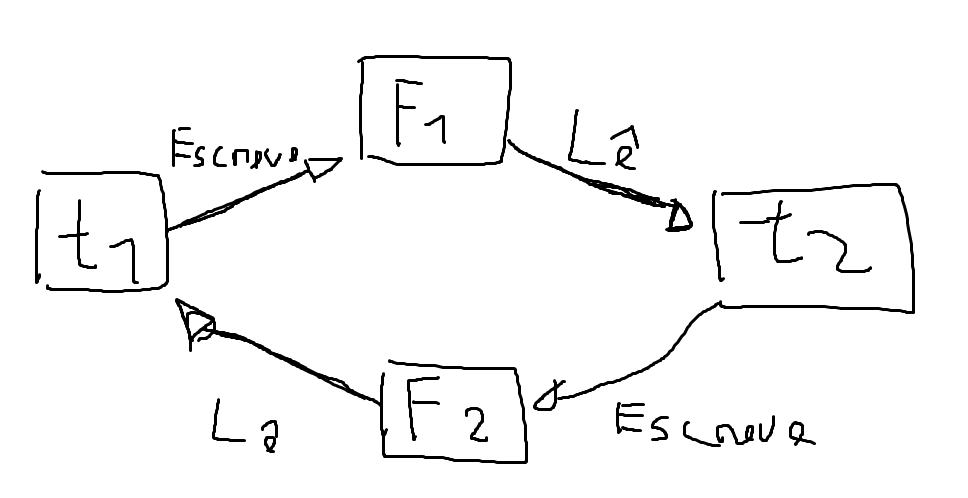 F1
Escreve
Lê
t1
t2
F2
Lê
Escreve